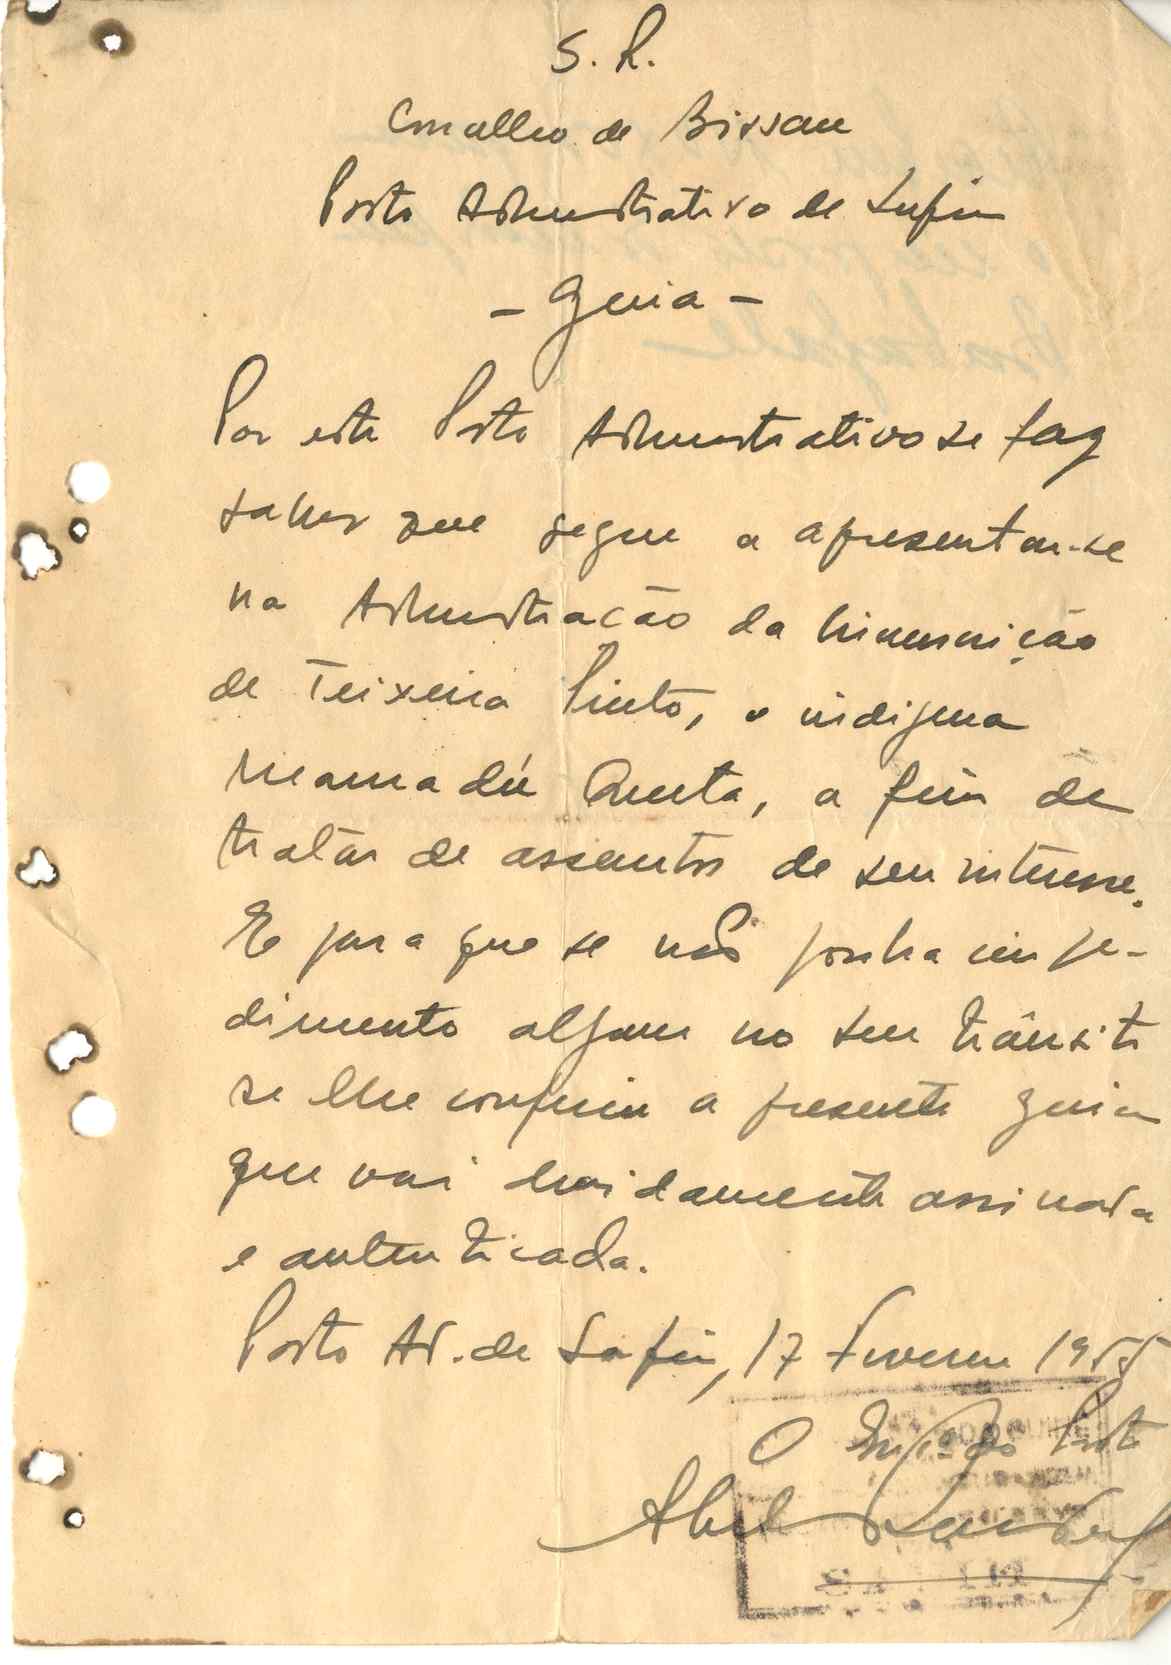 S. R.
Concelho de Bissau
Posto Administrativo de Safim
- Guia -
Por este Posto Administrativo se faz
saber que segue a apresentar-se
na Administração da Circunscrição
de Teixeira Pinto, o indigena
Mamadú Queita, a fim de
tratar de assuntos de seu interesse.
E para que se não ponha impe-
dimento algum no seu trânsito
se lhe conferiu a presente guia
que vai devidamente assinada
e autenticada.
Posto Ad. de Safim, 17 Fevereiro 1955
O Enc. do Posto
Abel